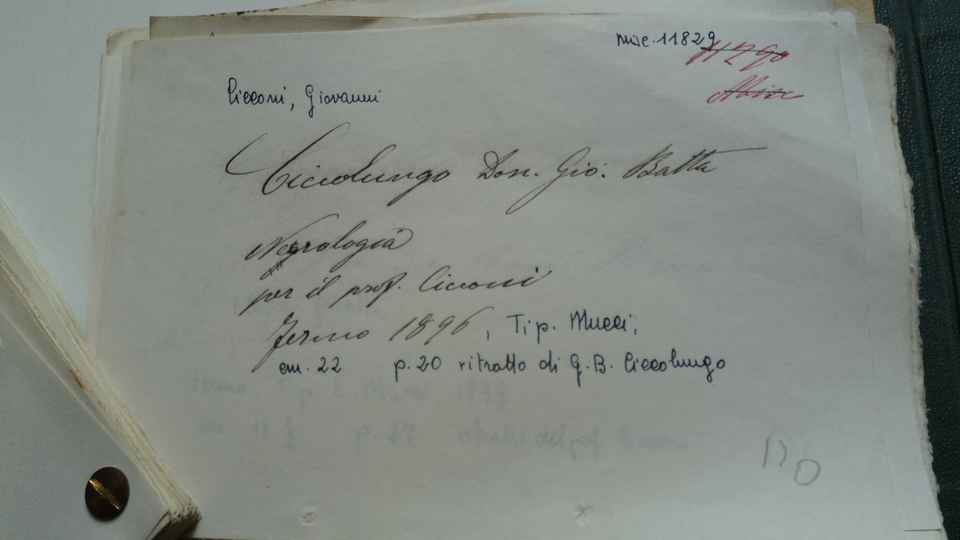 misc. 11829
Cicconi, Giovanni
Ciccolungo Don. Gio: Batta
Necrologia
per il prof. Cicconi
Fermo 1896, Tip. Mucci,
cm. 22 p. 20 ritratto di G. B. Ciccolungo